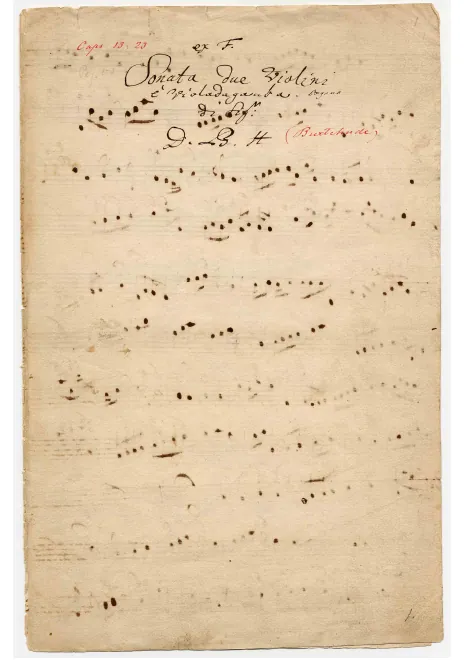 Caps 13:23
ex F.
Sonata due Violini
è Violadagamba.
di Sigr:
D. B. H
(Buxtehude)